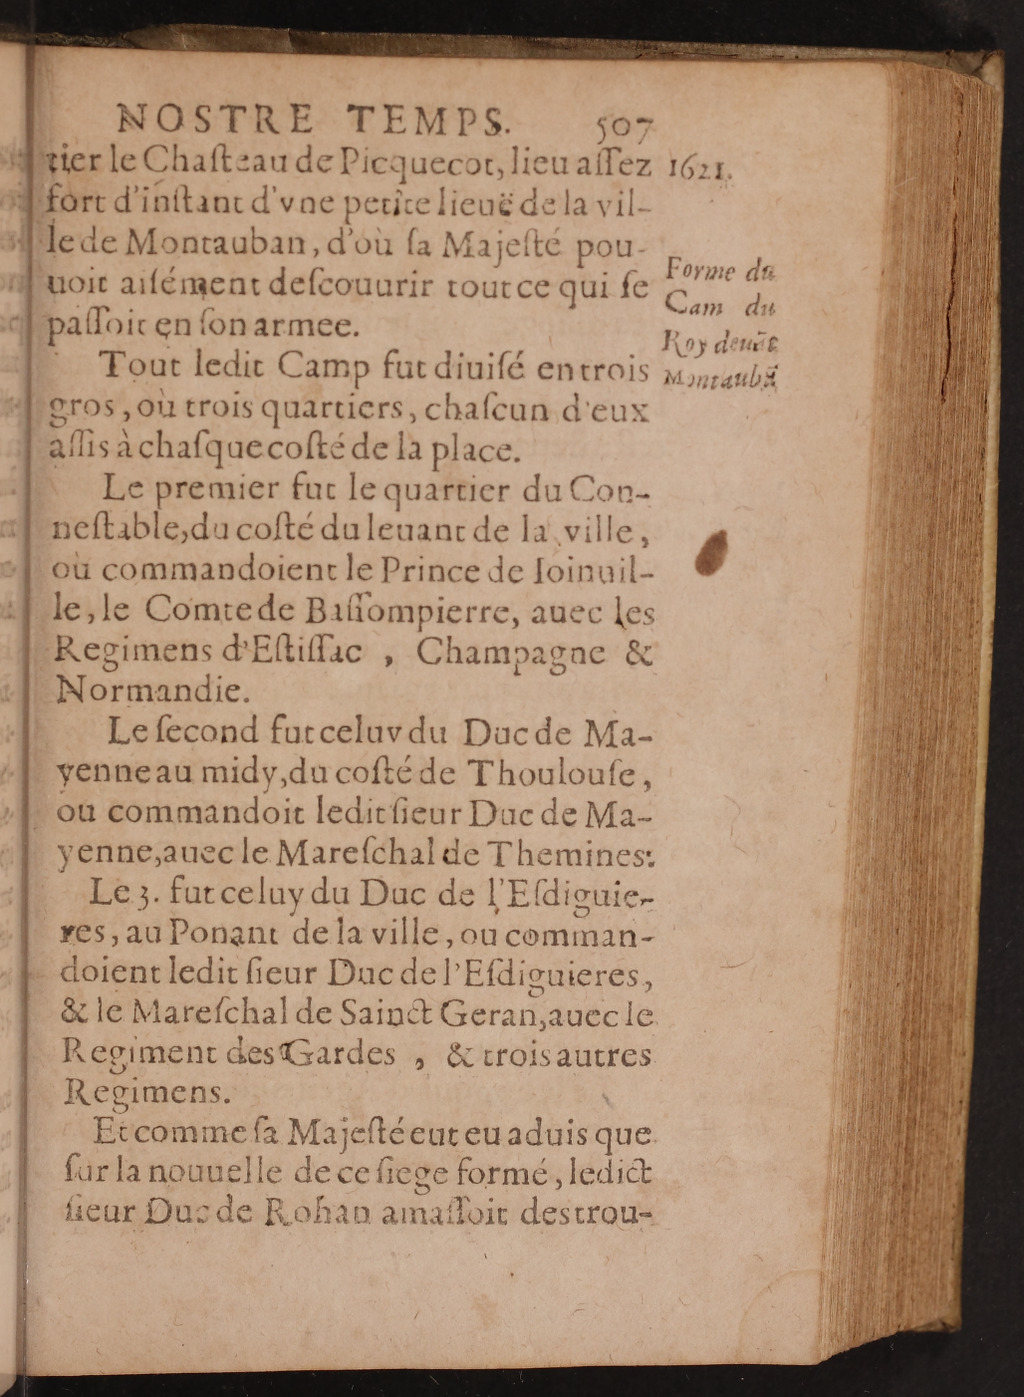 NOSTRE TEMPS. 507
tier le Chaſteau de Picquecot, lieu aſſez
1621.
fort d'inſtant d'vne petite lieuë de la vil-
le de Montauban, d'où ſa Majeſté pou-
uoit aiſément deſcouurir tout ce qui ſe
paſſoit en ſon armee.
Forme du
Cam du
Roy deuāt
Montaubā
Tout ledit Camp fut diuiſé en trois
gros, où trois quartiers, chaſcun d'eux
aſſis à chaſque coſté de la place.
Le premier fut le quartier du Con-
neſtable, du coſté du leuant de la ville,
où commandoient le Prince de Ioinuil-
le, le Comte de Baſſompierre, auec les
Regimens d'Eſtiſſac , Champagne &
Normandie.
Le ſecond fut celuy du Duc de Ma-
yenne au midy, du coſté de Thoulouſe,
ou commandoit ledit ſieur Duc de Ma-
yenne, auec le Mareſchal de Themines:
Le 3. fut celuy du Duc de l'Eſdiguie-
res, au Ponant de la ville, ou comman-
doient ledit ſieur Duc de l'Eſdiguieres,
& le Mareſchal de Sainct Geran, auec le
Regiment des Gardes , & trois autres
Regimens.
Et comme ſa Majeſté eut eu aduis que
ſur la nouuelle de ce ſiege formé, ledict
ſieur Duc de Rohan amaſſoit des trou-